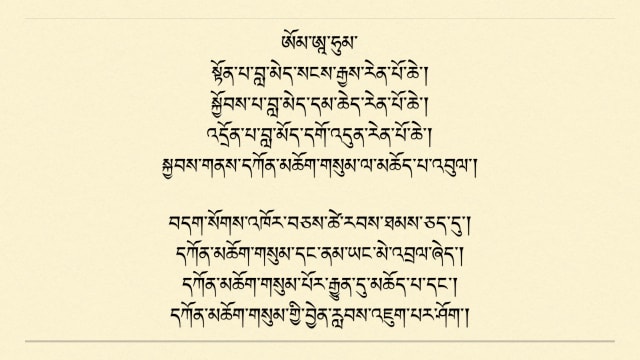 ཨོམ་ཨཱ་ཧུམ་
སྟོན་པ་བླ་མེད་སངས་རྒྱས་རེན་པོ་ཆེ་།
སྐྱོབས་པ་བླ་མེད་དམ་ཆེད་རེན་པོ་ཆེ་།
འདྲོན་པ་བླ་མོད་དགོ་འདུན་རེན་པོ་ཆེ་།
སྐྱབས་གནས་དཀོན་མཆོག་གསུམ་ལ་མཆོད་པ་འབུལ་།
བདག་སོགས་འཁོར་བཅས་ཚེ་རབས་ཐམས་ཅད་དུ་།
དཀོན་མཆོག་གསུམ་དང་ནམ་ཡང་མེ་འབྲལ་ཞེད་།
དཀོན་མཆོག་གསུམ་པོར་རྒྱུན་དུ་མཆོད་པ་དང་།
དཀོན་མཆོག་གསུམ་གྱི་བྱེན་རླབས་འཇུག་པར་ཤོག་།